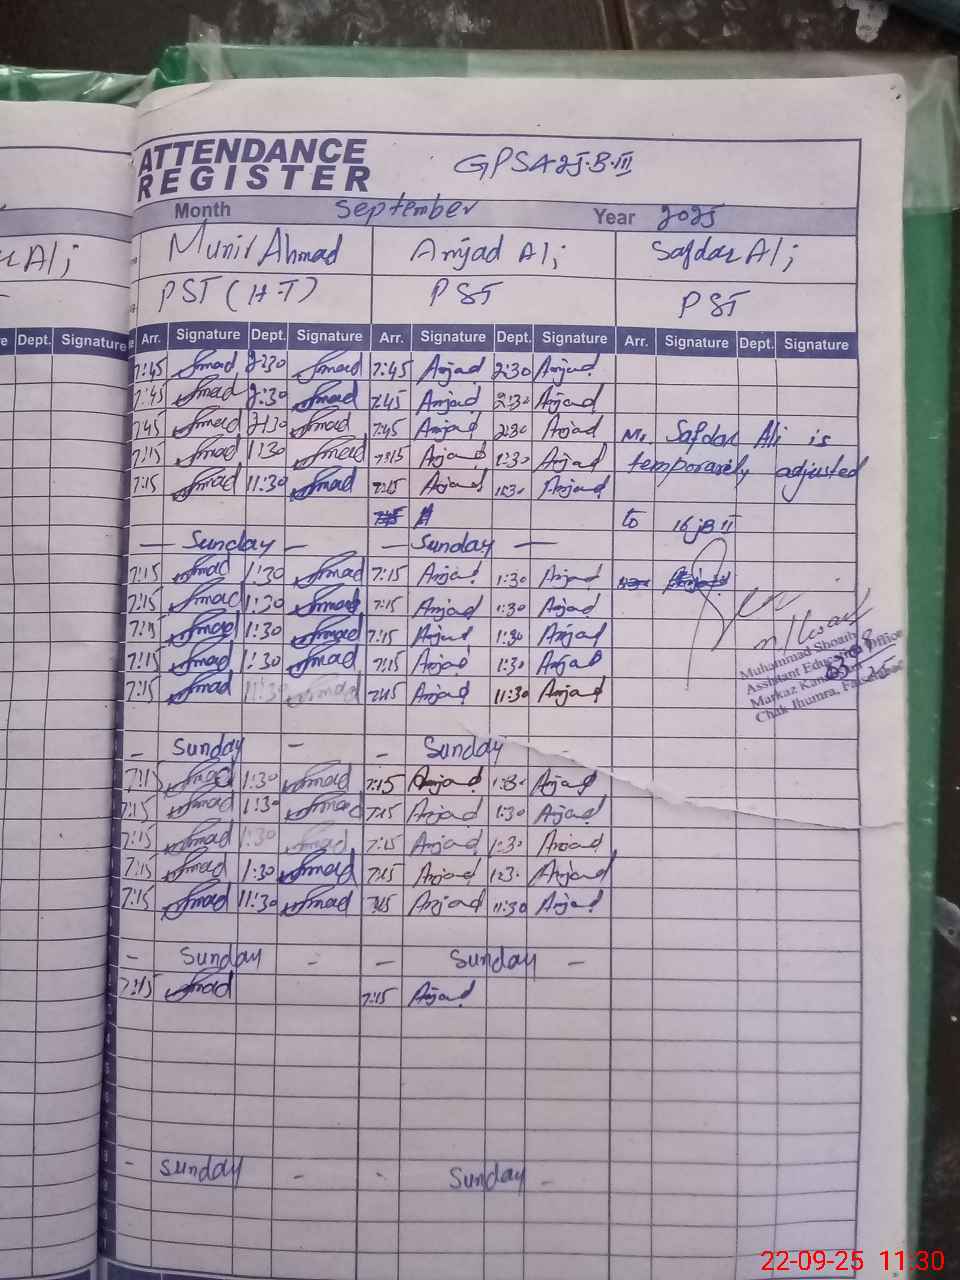 ATTENDANCE
REGISTER
Month September Year 2025
Ali Munir Ahmad Amjad Ali Safdar Ali
PST (H-T) PST PST
Dept. Signature Arr. Signature Dept. Signature Arr. Signature Dept. Signature Arr. Signature Dept. Signature
7:45 2:30 7:45 Amjad 2:30 Amjad
7:45 2:30 7:45 Amjad 2:30 Amjad
7:45 2:30 7:45 Amjad 2:30 Amjad Mr. Safdar Ali is
7:15 1:30 7:15 Amjad 1:30 Amjad temporarily adjusted
7:15 11:30 7:15 Amjad 11:30 Amjad
to 16 JB II
— Sunday — — Sunday —
7:15 1:30 7:15 Amjad 1:30 Amjad
7:15 1:30 7:15 Amjad 1:30 Amjad
7:15 1:30 7:15 Amjad 1:30 Amjad
7:15 1:30 7:15 Amjad 1:30 Amjad
7:15 11:30 7:15 Amjad 11:30 Amjad
Muhammad Shoaib
Assistant Education Office
Markaz
Chak Jhumra,
— Sunday — — Sunday —
7:15 1:30 7:15 Amjad 1:30 Amjad
7:15 1:30 7:15 Amjad 1:30 Amjad
7:15 1:30 7:15 Amjad 1:30 Amjad
7:15 1:30 7:15 Amjad 1:30 Amjad
7:15 11:30 7:15 Amjad 11:30 Amjad
— Sunday — — Sunday —
7:15 7:15 Amjad
— Sunday — — Sunday —
22-09-25 11:30